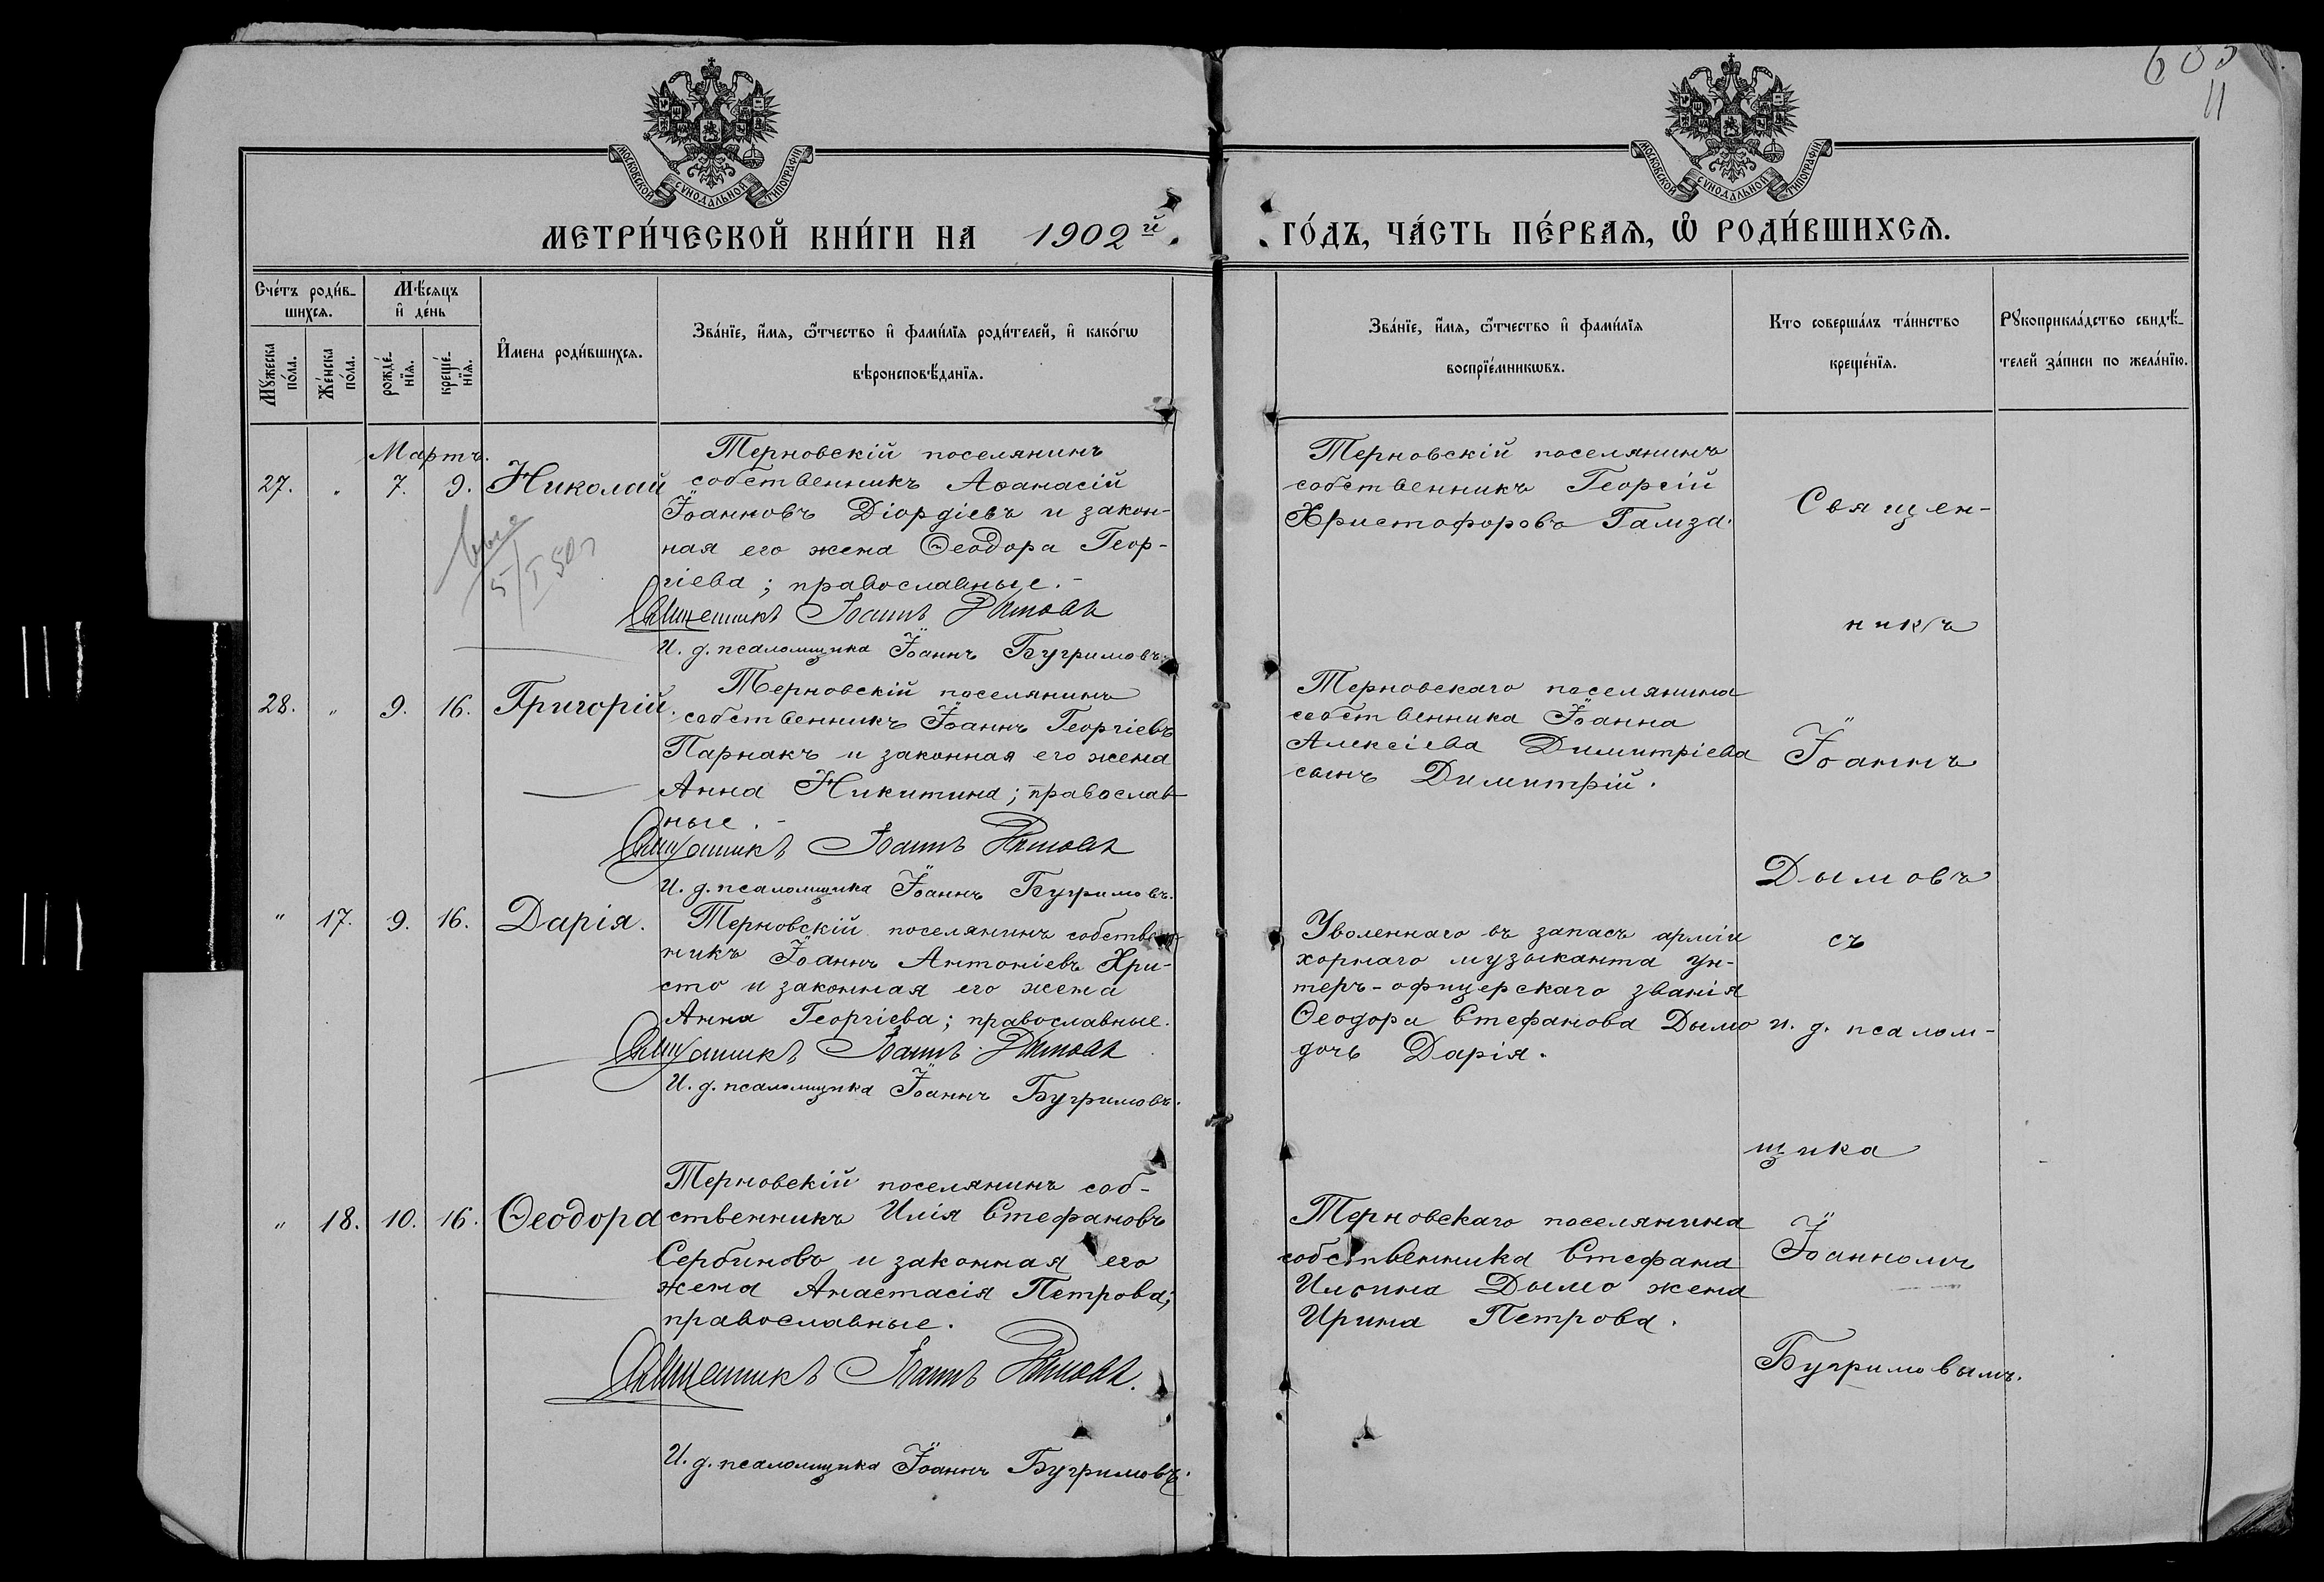 683
11
МОСКОВСКОЙ СѴНОДАЛЬНОЙ ТИПОГРАФІИ
МОСКОВСКОЙ СѴНОДАЛЬНОЙ ТИПОГРАФІИ
МЕТРИ́ЧЕСКОЙ КНИ́ГИ НА 1902й.
ГО́ДЪ, ЧА́СТЬ ПЕ́РВАѦ, Ѽ РОДИ́ВШИХСѦ.
Сче́тъ роди́в-
шихсѧ.
Мꙋжеска по́ла.
Же́нска по́ла.
Мѣ́сѧцъ
и҆ де́нь
рожде́-
нїѧ.
креще́-
нїѧ.
И҆мена роди́вшихсѧ.
Зва́нїе, и҆́мѧ, ѻ҆́тчество и҆ фами́лїѧ роди́телей, и҆ како́гѡ
вѣроисповѣ́данїѧ.
Зва́нїе, и҆́мѧ, ѻ҆́тчество и҆ фами́лїѧ
воспрїе́мникѡвъ.
Кто соверша́лъ та́инство
креще́нїѧ.
Рꙋкоприкла́дство свидѣ́-
телей за́писи по жела́нїю.
Мартъ.
27. " 7. 9. Николай
Терновскій поселянинъ
собственникъ Аѳанасій
Іоанновъ Діордіевъ и закон-
ная его жена Ѳеодора Геор-
гіева; православные.-
Священникъ Іоаннъ Дымовъ
И. д. псаломщика Іоаннъ Бугримовъ.
Терновскій поселянинъ
собственникъ Георгій
Христофоровъ Гамза.
28. " 9. 16. Григорій.
Терновскій поселянинъ
собственникъ Іоаннъ Георгіевъ
Парнакъ и законная его жена
Анна Никитина; православ-
ные.-
Священникъ Іоаннъ Дымовъ
И. д. псаломщика Іоаннъ Бугримовъ.
Терновскаго поселянина
собственника Іоанна
Алексіева Димитріева
сынъ Димитрій.
" 17. 9. 16. Дарія.
Терновскій поселянинъ собствен-
никъ Іоаннъ Антоніевъ Хри-
сто и законная его жена
Анна Георгіева; православные.
Священникъ Іоаннъ Дымовъ
И. д. псаломщика Іоаннъ Бугримовъ.
Уволеннаго въ запасъ арміи
хорнаго музыканта ун-
теръ-офицерскаго званія
Ѳеодора Стефанова Дымо
дочь Дарія.
" 18. 10. 16. Ѳеодора
Терновскій поселянинъ соб-
ственникъ Илія Стефановъ
Сербиновъ и законная его
жена Анастасія Петрова;
православные.
Священникъ Іоаннъ Дымовъ.
И. д. псаломщика Іоаннъ Бугримовъ.
Терновскаго поселянина
собственника Стефана
Ильина Дымо жена
Ирина Петрова.
Священ-
никъ
Іоаннъ
Дымовъ
съ
и. д. псалом-
щика
Іоанномъ
Бугримовымъ.